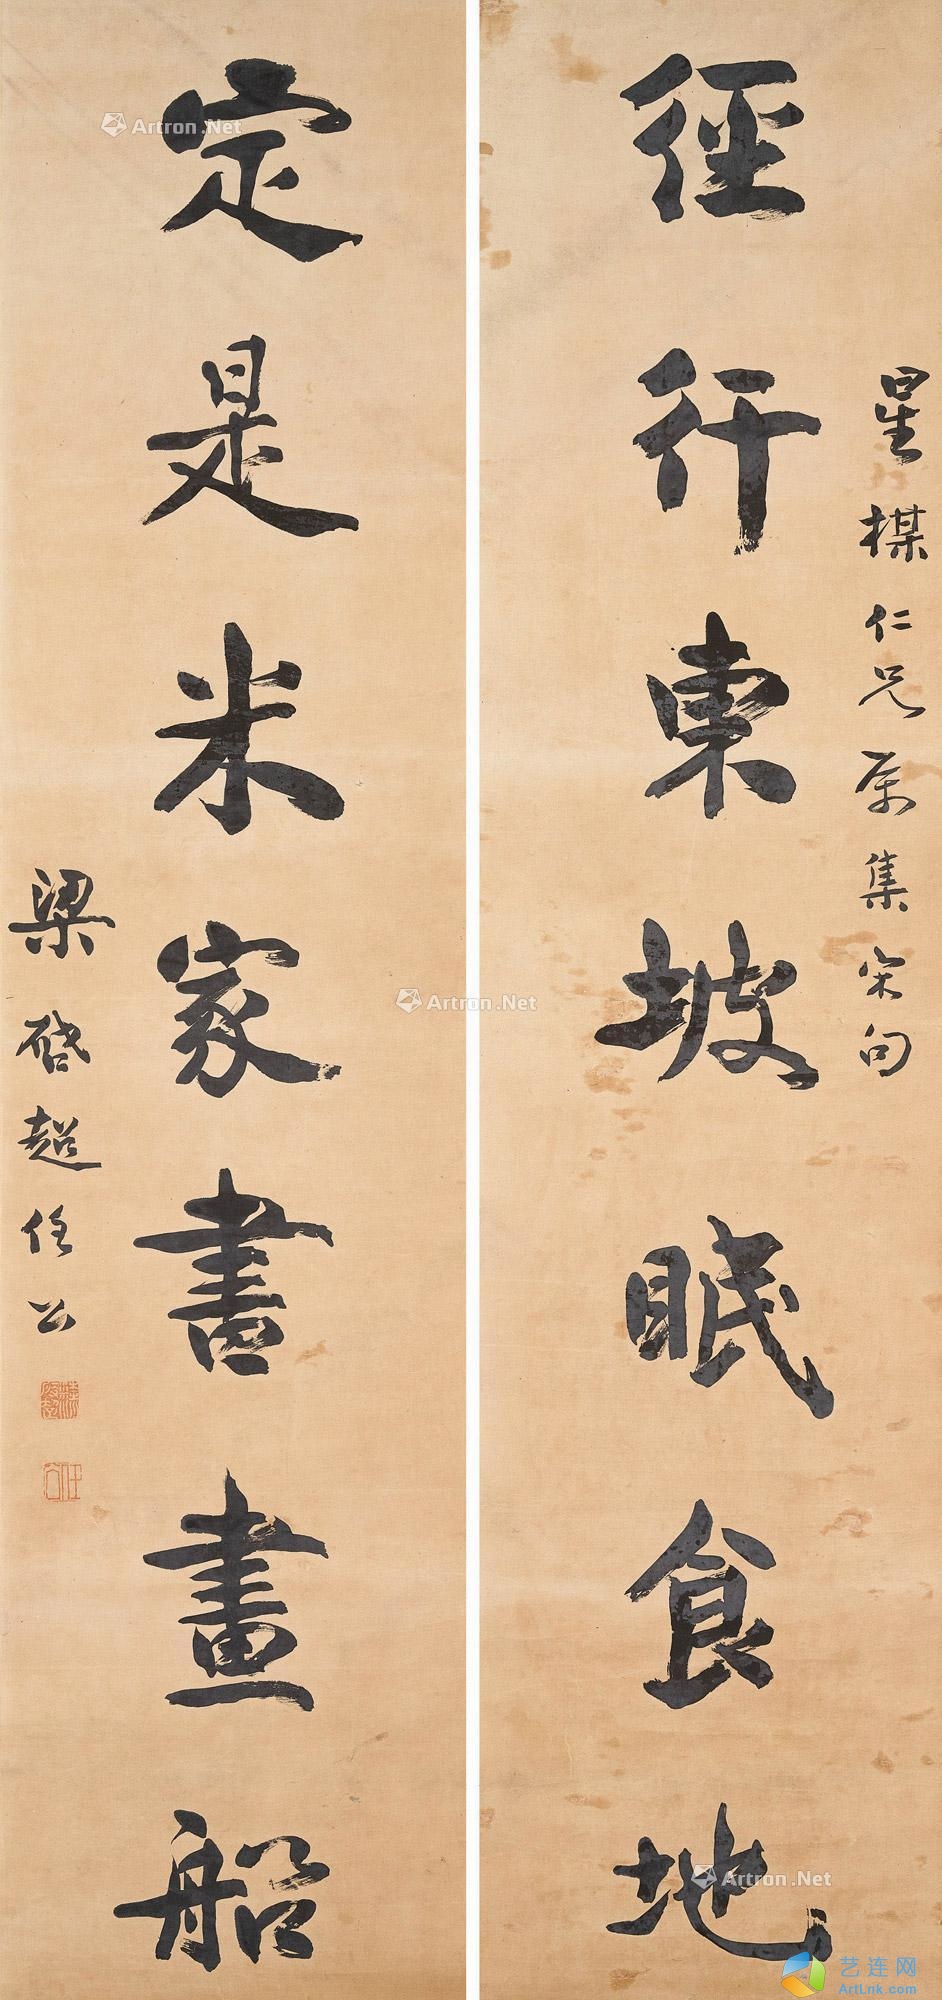 星楳仁兄属集宋句
徑行東坡眠食地
定是米家書畫船
梁啟超任公
Artron.Net
Artron.Net
Artron.Net
艺连网
ArtLink.com